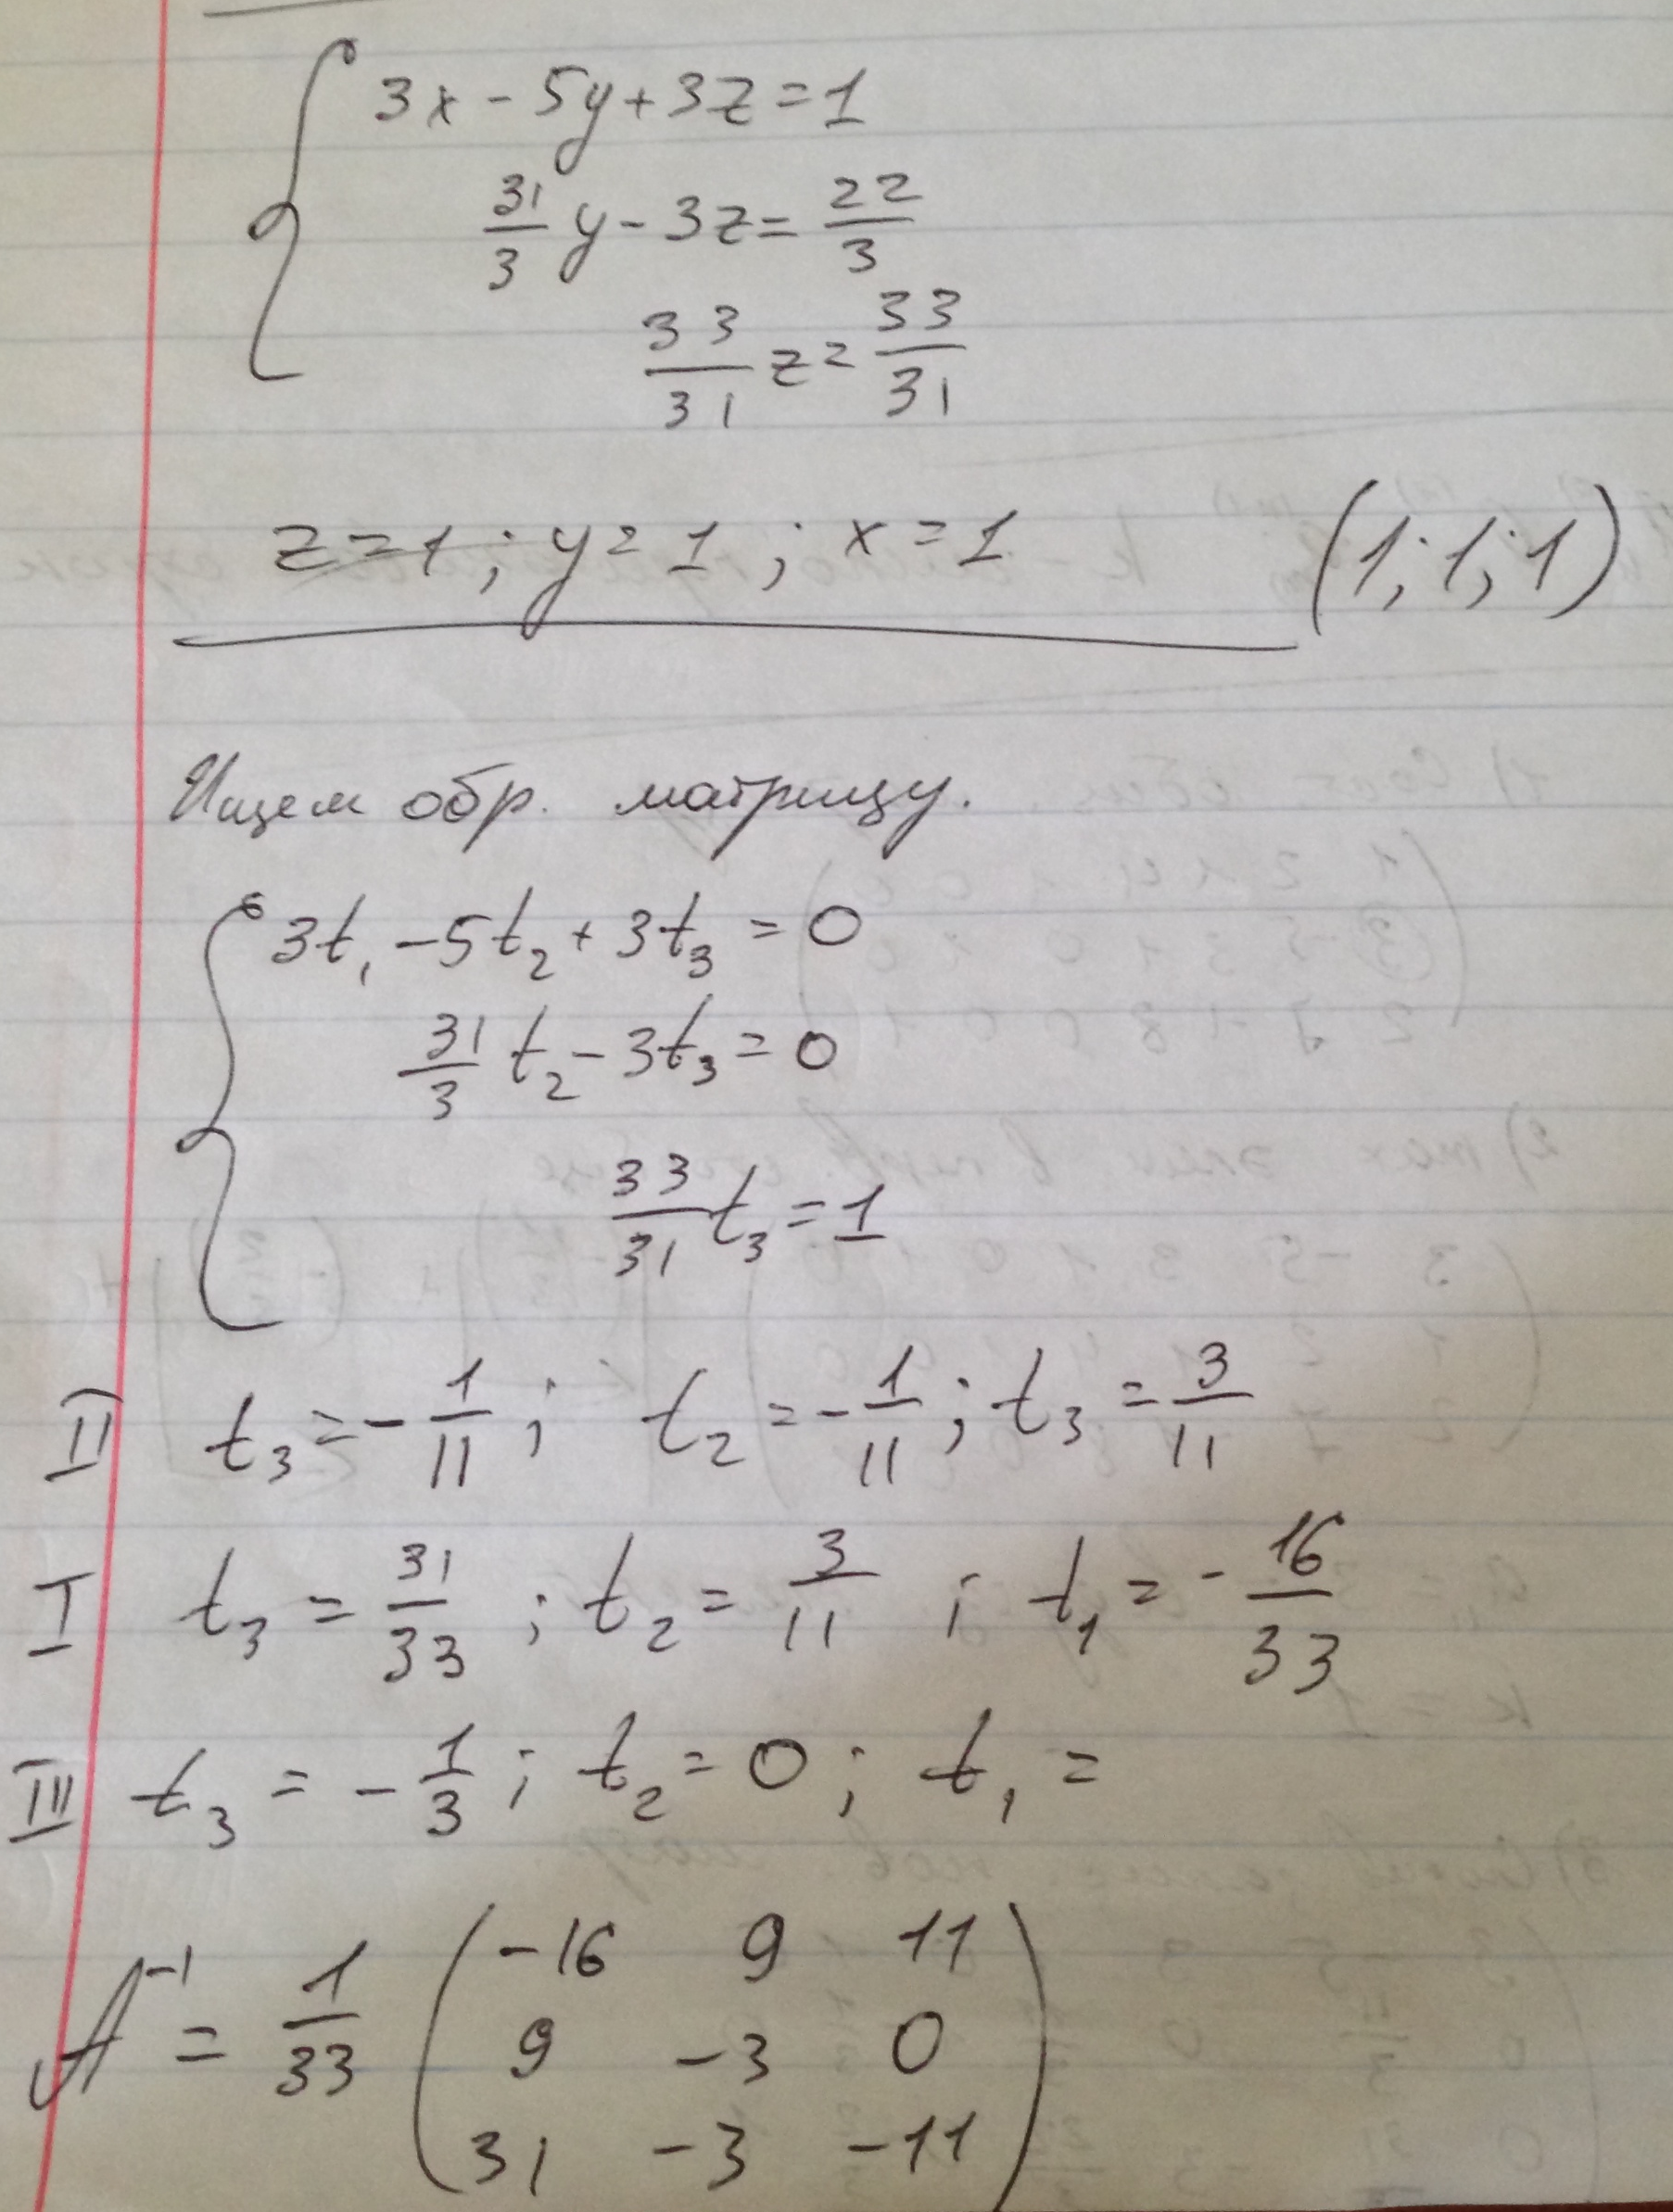 3x - 5y + 3z = 1
31/3 y - 3z = 22/3
33/31 z = 33/31
z = 1 ; y = 1 ; x = 1 (1; 1; 1)
Ищем обр. матрицу.
3t₁ - 5t₂ + 3t₃ = 0
31/3 t₂ - 3t₃ = 0
33/31 t₃ = 1
II t₃ = - 1/11 ; t₂ = - 1/11 ; t₃ = 3/11
I t₃ = 31/33 ; t₂ = 3/11 ; t₁ = - 16/33
III t₃ = - 1/3 ; t₂ = 0 ; t₁ =
A⁻¹ = 1/33 ( -16 9 11
9 -3 0
31 -3 -11 )